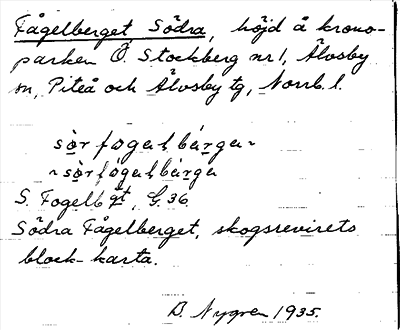 Fågelberget Södra, höjd å krono-
parken Ö. Stockberg nr 1, Älvsby
sn, Piteå och Älvsby tg, Norrb. l.
sò̤r fogalbárga ~
~ sò̤r fógalbárga
S. Fogelbgt, G. 36
Södra Fågelberget, skogsrevirets
block-karta.
B. Nygren 1935.